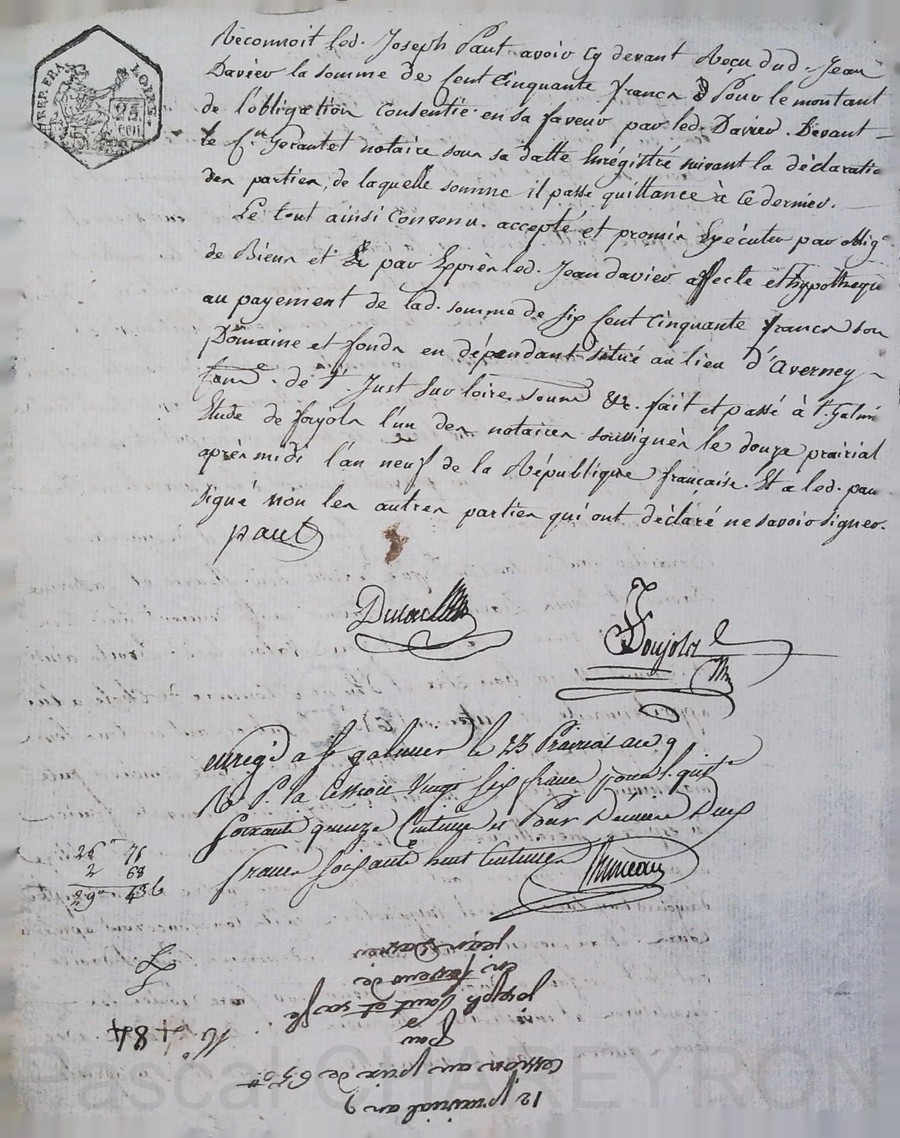 Reconnoit led. Joseph Paut avoir cy devant Recu dud. Jean
Davier la somme de Cent Cinquante francs Pour le montant
de l'obligation Consentie en sa faveur par led. Davier. Devant
le notaire sous sa datte Enrégistré suivant la déclaratio
des parties, de laquelle somme il passe quittance à Ce dernier.
Le tout ainsi Convenu, accepté et promis Exécuter par oblig.ᵒ
de Biens et par Exprès led. Jean davier affecte et hypotheque
au payement de lad. somme de Six Cent Cinquante francs son
Domaine et fonds en dépendant situé au lieu d'averney
de St Just sur loire. soum &c. fait et passé à St Galmi
Etude de foujols l'un des notaires soussignés le douze prairial
après midi l'an neuf de la République française. Et a led. paut
signé non les autres parties qui ont déclaré ne savoir signer.
paut
Foujols
enreg.d a St galmier le 23 Prairial an 9
R. P. la Cession Vingt Six francs pour l. quit.e
Soixante quinze Centimes et Pour Dixieme Deux
francs Soixante huit Centimes
26 75
2 68
29 43
12 prairial an 9
Cession au prix de 650
Par
Joseph Paut et sa fe
en faveur de
jean Davier
LOIRE
25
CEN
Pascal CHAREYRON